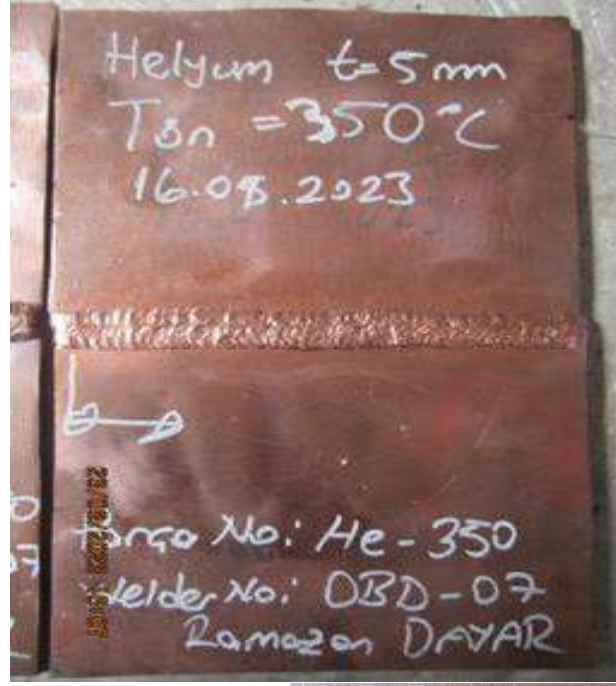 Helyum t=5mm
Tön =350°C
16.08.2023
Parça No: He-350
Welder No: OBD-07
Ramazan DAYAR